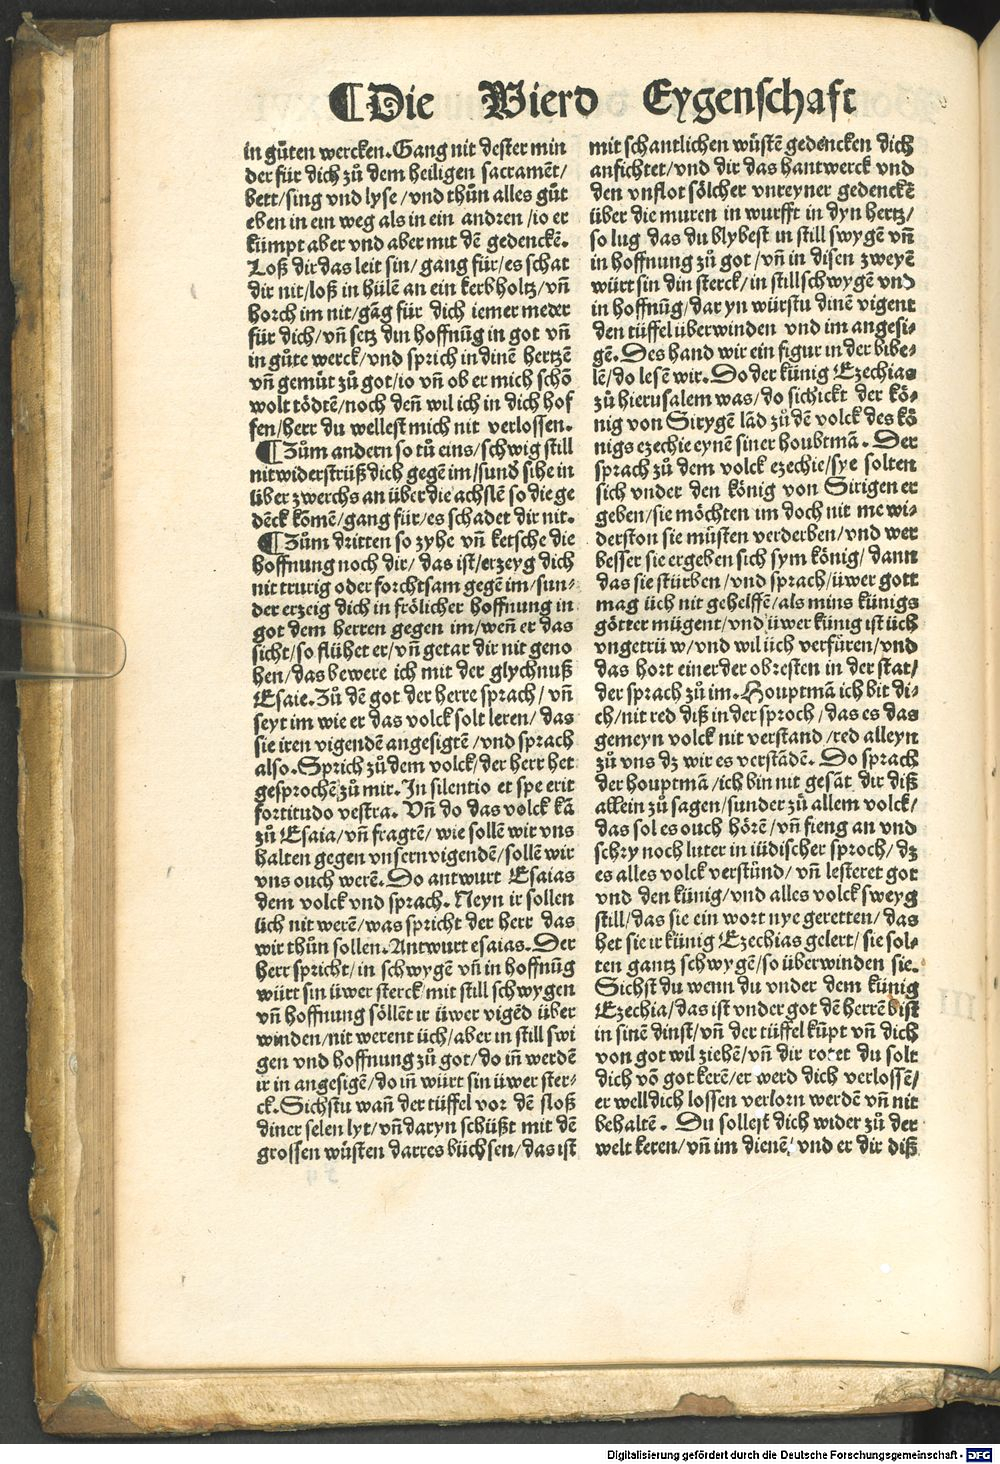 ¶Die Vierd Eygenschafft
in gůten wercken. Gang nit dester min
der für dich zů dem heiligen sacramēt/
bett/sing vnd lyse/vnd thůn alles gůt
eben in ein weg als in ein andren/io er
kümpt aber vnd aber mit dē gedenckē.
Loß dir das leit sin/gang für/es schat
dir nit/loß in hülē an ein kerbholtz/vn̄
horch im nit/gāg für dich iemer meder
für dich/vn̄ setz din hoffnūg in got vn̄
in gůte werck/vnd sprich in dinē hertzē
vn̄ gemüt zů got/io vn̄ ob er mich schō
wolt tödtē/noch den̄ wil ich in dich hof
fen/herr du wellest mich nit verlossen.
¶Zům andern so tů eins/schwig still
nit widerstrüß dich gegē im/sund̄ sihe in
über zwerchs an über die achslē so die ge
dēck komē/gang für/es schadet dir nit.
¶Zům dritten so zyhe vn̄ ketsche die
hoffnung noch dir/das ist/erzeyg dich
nit trurig oder forchtsam gegē im/sun-
der erzeig dich in frölicher hoffnung in
got dem herren gegen im/wen̄ er das
sicht/so flühet er/vn̄ getar dir nit geno
hen/das bewere ich mit der glychnuß
Esaie. Zů dē got der herre sprach/vn̄
seyt im wie er das volck solt leren/das
sie iren vigendē angesigtē/vnd sprach
also. Sprich zů dem volck/der herr het
gesprochē zů mir. In silentio et spe erit
fortitudo vestra. Vn̄ do das volck kā
zů Esaia/vn̄ fragtē/wie sollē wir vns
halten gegen vnsern vigendē/sollē wir
vns ouch werē. Do antwurt Esaias
dem volck vnd sprach. Neyn ir sollen
üch nit werē/was spricht der herr das
wir thůn sollen. Antwurt esaias. Der
herr spricht/in schwygē vn̄ in hoffnūg
würt sin üwer sterck/mit still schwygen
vn̄ hoffnung söllēt ir üwer vigēd über
winden/nit werent üch/aber in still swi
gen vnd hoffnung zů got/do in̄ werdē
ir in angesigē/do in̄ würt sin üwer ster-
ck. Sichstu wan̄ der tüffel vor dē sloß
diner selen lyt/vn̄ daryn schüßt mit dē
grossen wüsten darres büchsen/das ist
mit schantlichen wüstē gedencken dich
anfichtet/vnd dir das hantwerck vnd
den vnflot sölcher vnreyner gedenckē
über die muren in wurfft in dyn hertz/
so lug das du blybest in still swygē vn̄
in hoffnung zů got/vn̄ in disen zweyē
würt sin din sterck/in stillschwygē vnd
in hoffnūg/dar yn würstu dinē vigent
den tüffel überwinden vnd im angesi-
gē. Des hand wir ein figur in der bibe-
lē/do lesē wir. Do der künig Ezechias
zů hierusalem was/do schickt der kö-
nig von Sirygē lād zů dē volck des kö
nigs ezechie eynē siner houbtmā. Der
sprach zů dem volck ezechie/sye solten
sich vnder den könig von Sirigen er
geben/sie möchten im doch nit me wi-
derston sie müsten verderben/vnd wer
besser sie ergeben sich sym könig/dann
das sie stürben/vnd sprach/üwer gott
mag üch nit gehelffē/als mins künigs
götter mügent/vnd üwer künig ist üch
vngetrüw/vnd wil üch verfüren/vnd
das hort einer der obresten in der stat/
der sprach zů im. Houptmā ich bit di-
ch/nit red diß in der sproch/das es das
gemeyn volck nit verstand/red alleyn
zů vns dz wir es verstādē. Do sprach
der houptmā/ich bin nit gesāt dir diß
allein zů sagen/sunder zů allem volck/
das sol es ouch hörē/vn̄ fieng an vnd
schry noch luter in iüdischer sproch/dz
es alles volck verstůnd/vn̄ lesteret got
vnd den künig/vnd alles volck sweyg
still/das sie ein wort nye geretten/das
het sie ir künig Ezechias gelert/sie sol-
ten gantz schwygē/so überwinden sie.
Sichst du wenn du vnder dem künig
Ezechia/das ist vnder got dē herrē bist
in sinē dinst/vn̄ der tüffel kūpt vn̄ dich
von got wil ziehē/vn̄ dir rotet du solt
dich vō got kerē/er werd dich verlossē/
er well dich lossen verlorn werdē vn̄ nit
behaltē. Du sollest dich wider zů der
welt keren/vn̄ im dienē/vnd er dir diß
Digitalisierung gefördert durch die Deutsche Forschungsgemeinschaft - DFG